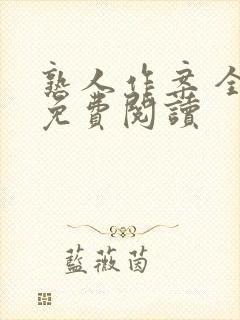 熟人作案全
免費閱讀
藍薇茵